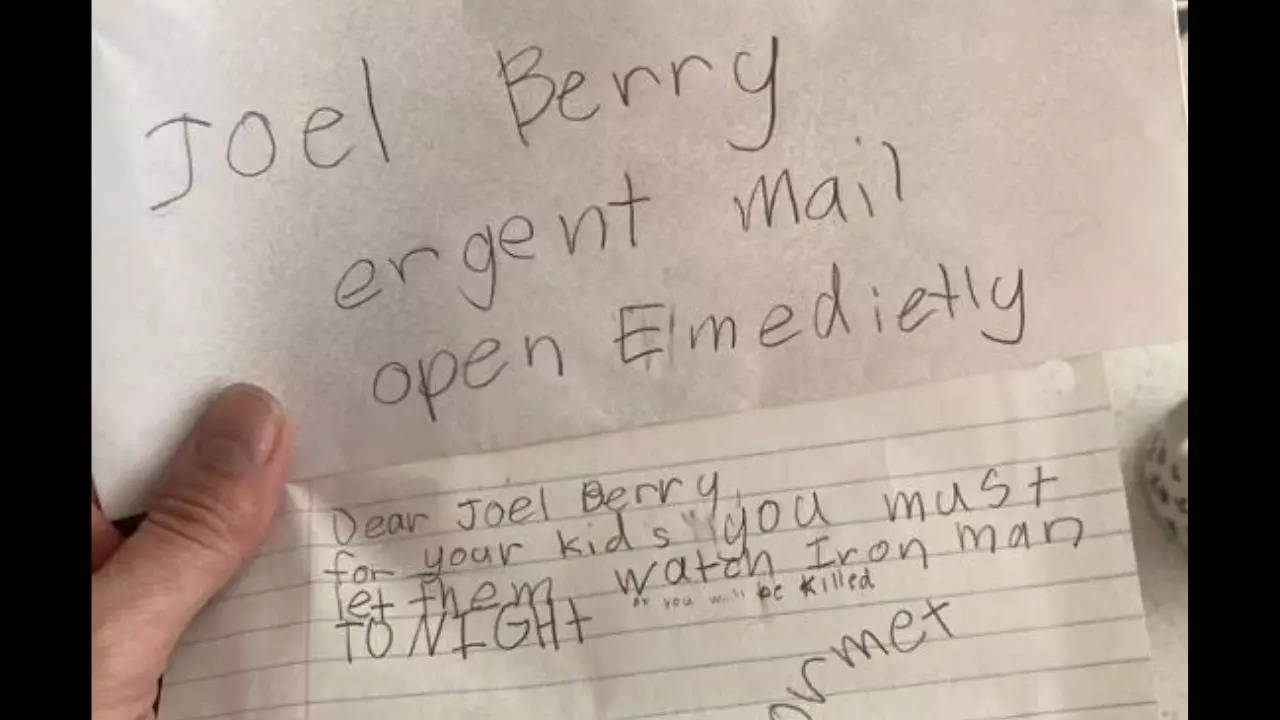 Joel Berry
ergent mail
open Elmedietly
Dear Joel Berry,
for your kids you must
let them watch Iron man
or you will be killed
TONIGHt